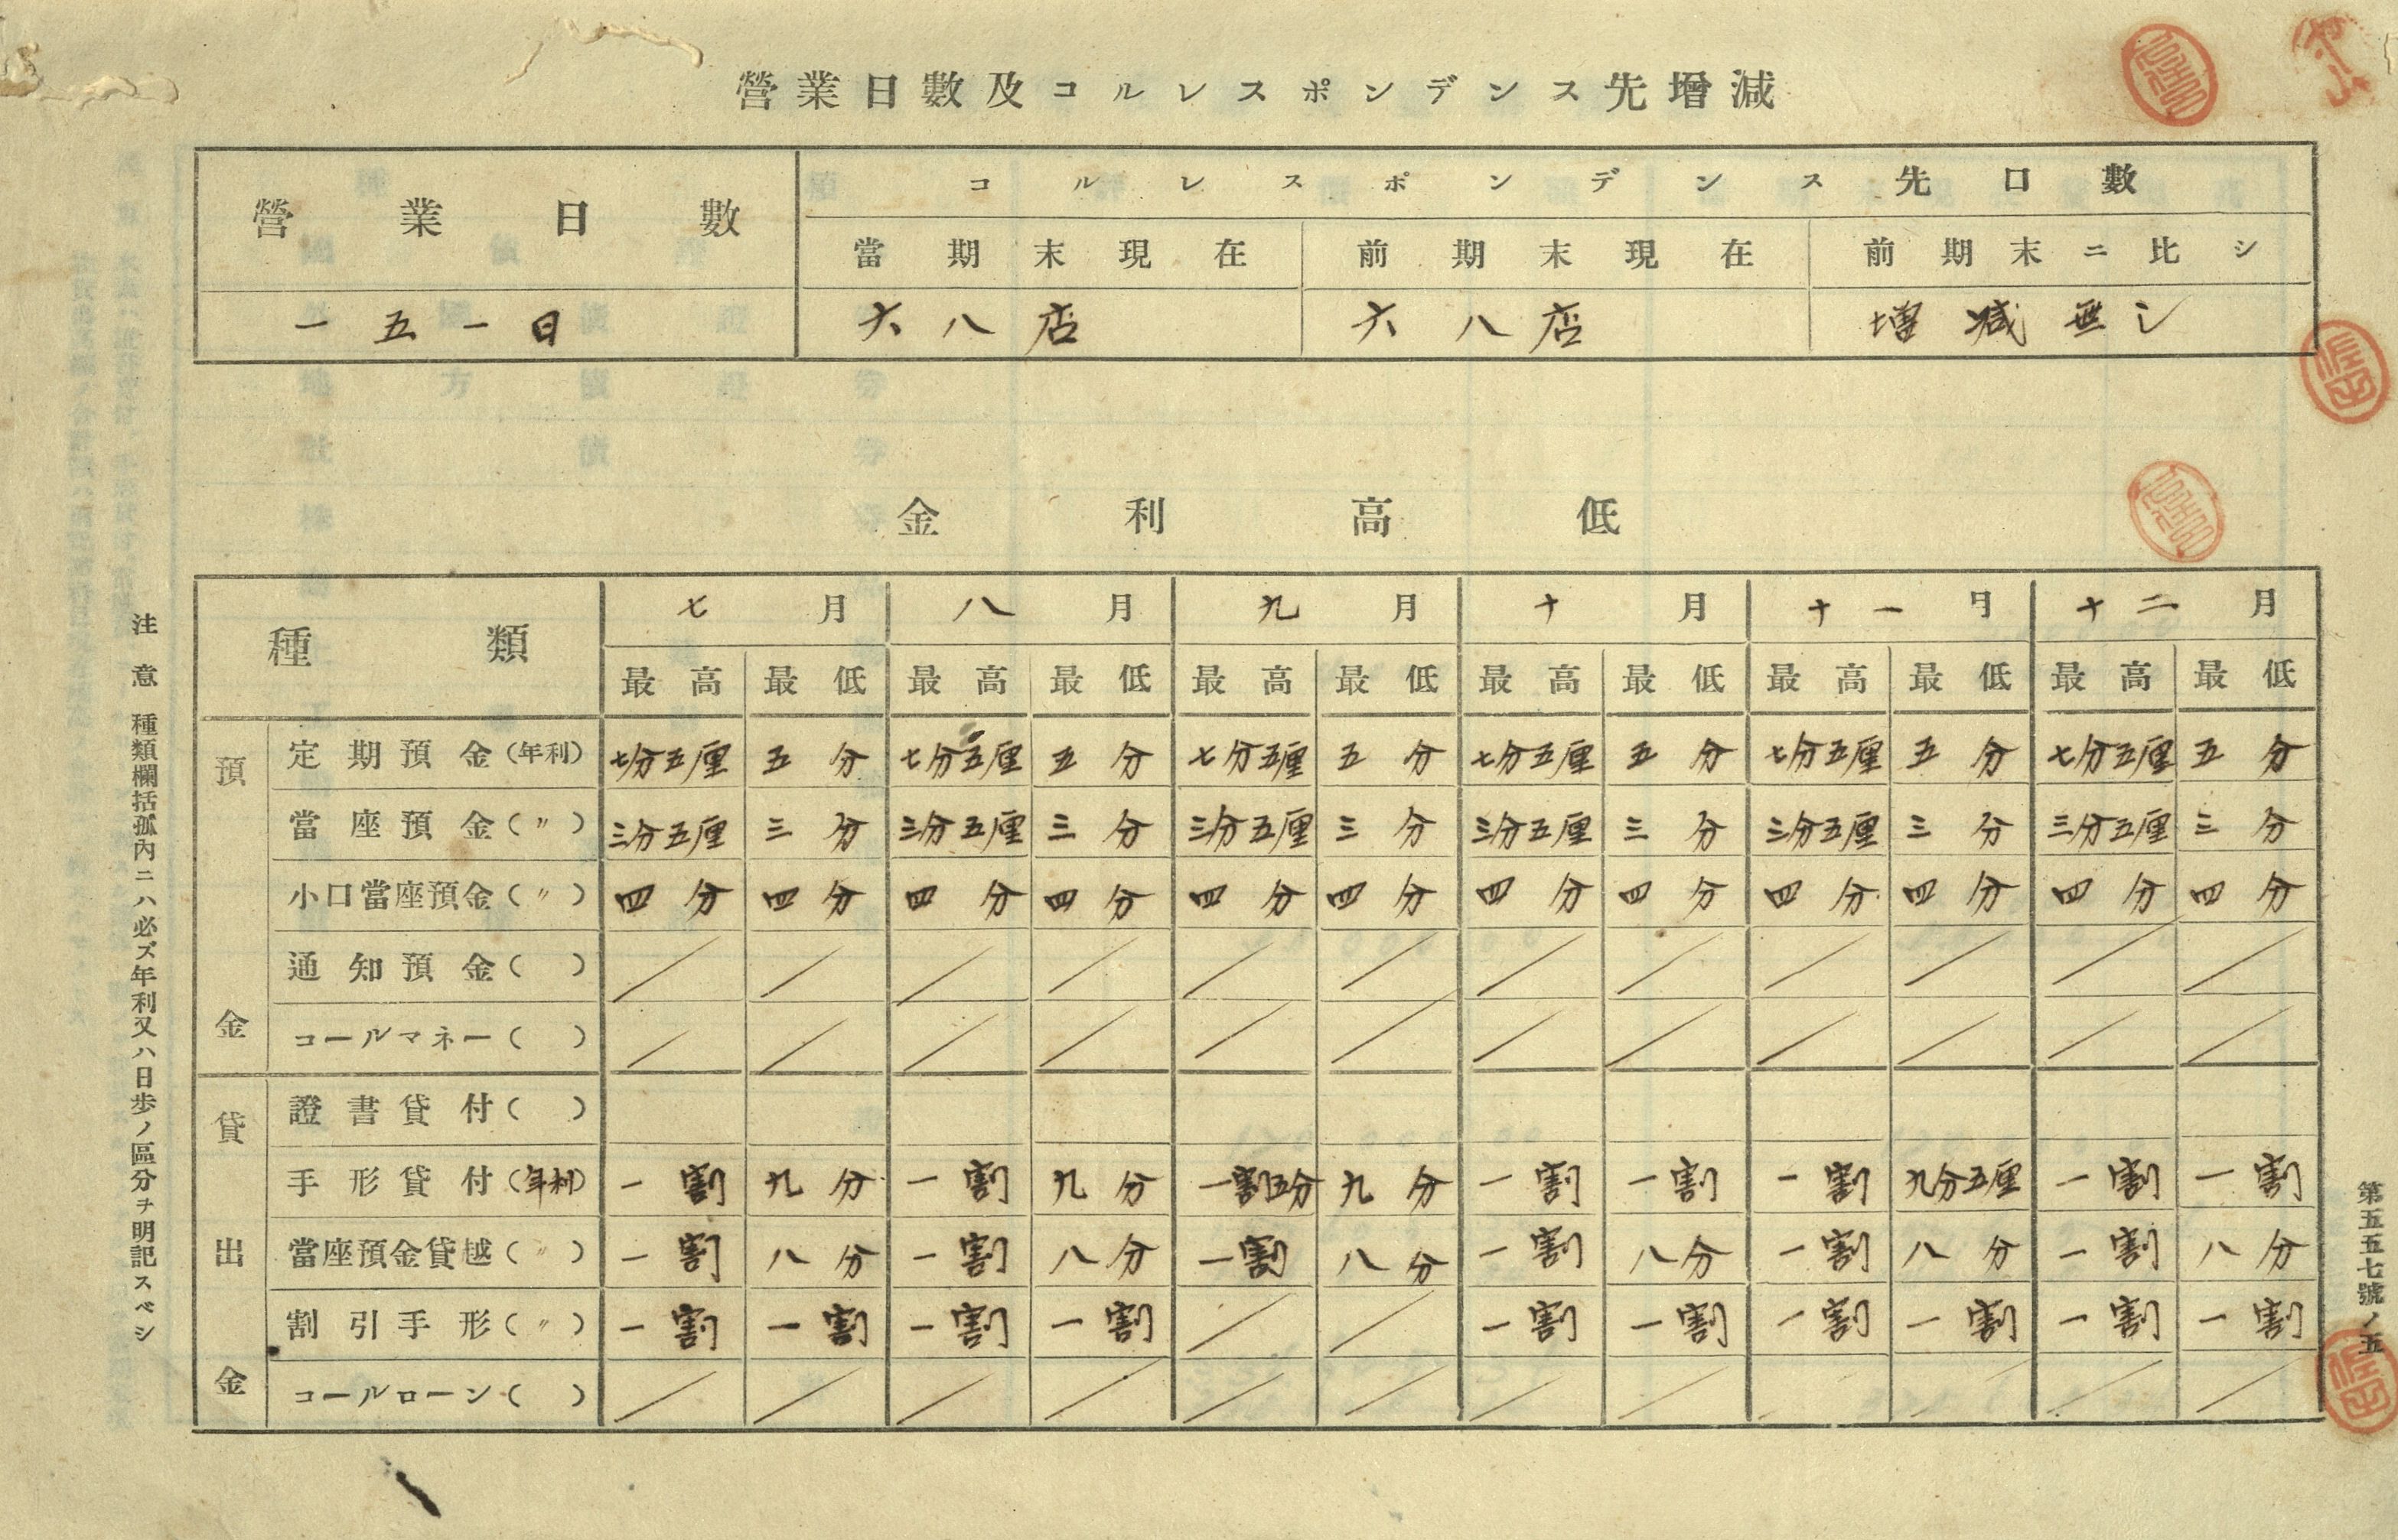 營業日數及コルレスポンデンス先增減
營業日數
コルレスポンデンス先口數
當期末現在 前期末現在 前期末ニ比シ
一五一日 六八店 六八店 增減無シ
金利高低
種類 七月 八月 九月 十月 十一月 十二月
最高 最低 最高 最低 最高 最低 最高 最低 最高 最低 最高 最低
預金
定期預金(年利) 七分五厘 五分 七分五厘 五分 七分五厘 五分 七分五厘 五分 七分五厘 五分 七分五厘 五分
當座預金(〃) 三分五厘 三分 三分五厘 三分 三分五厘 三分 三分五厘 三分 三分五厘 三分 三分五厘 三分
小口當座預金(〃) 四分 四分 四分 四分 四分 四分 四分 四分 四分 四分 四分 四分
通知預金( )
コールマネー( )
貸出金
證書貸付( )
手形貸付(年利) 一割 九分 一割 九分 一割五分 九分 一割 一割 一割 九分五厘 一割 一割
當座預金貸越(〃) 一割 八分 一割 八分 一割 八分 一割 八分 一割 八分 一割 八分
割引手形(〃) 一割 一割 一割 一割 一割 一割 一割 一割 一割 一割
コールローン( )
注意 種類欄括孤內ニハ必ズ年利又ハ日步ノ區分ヲ明記スベシ
第五五七號ノ五